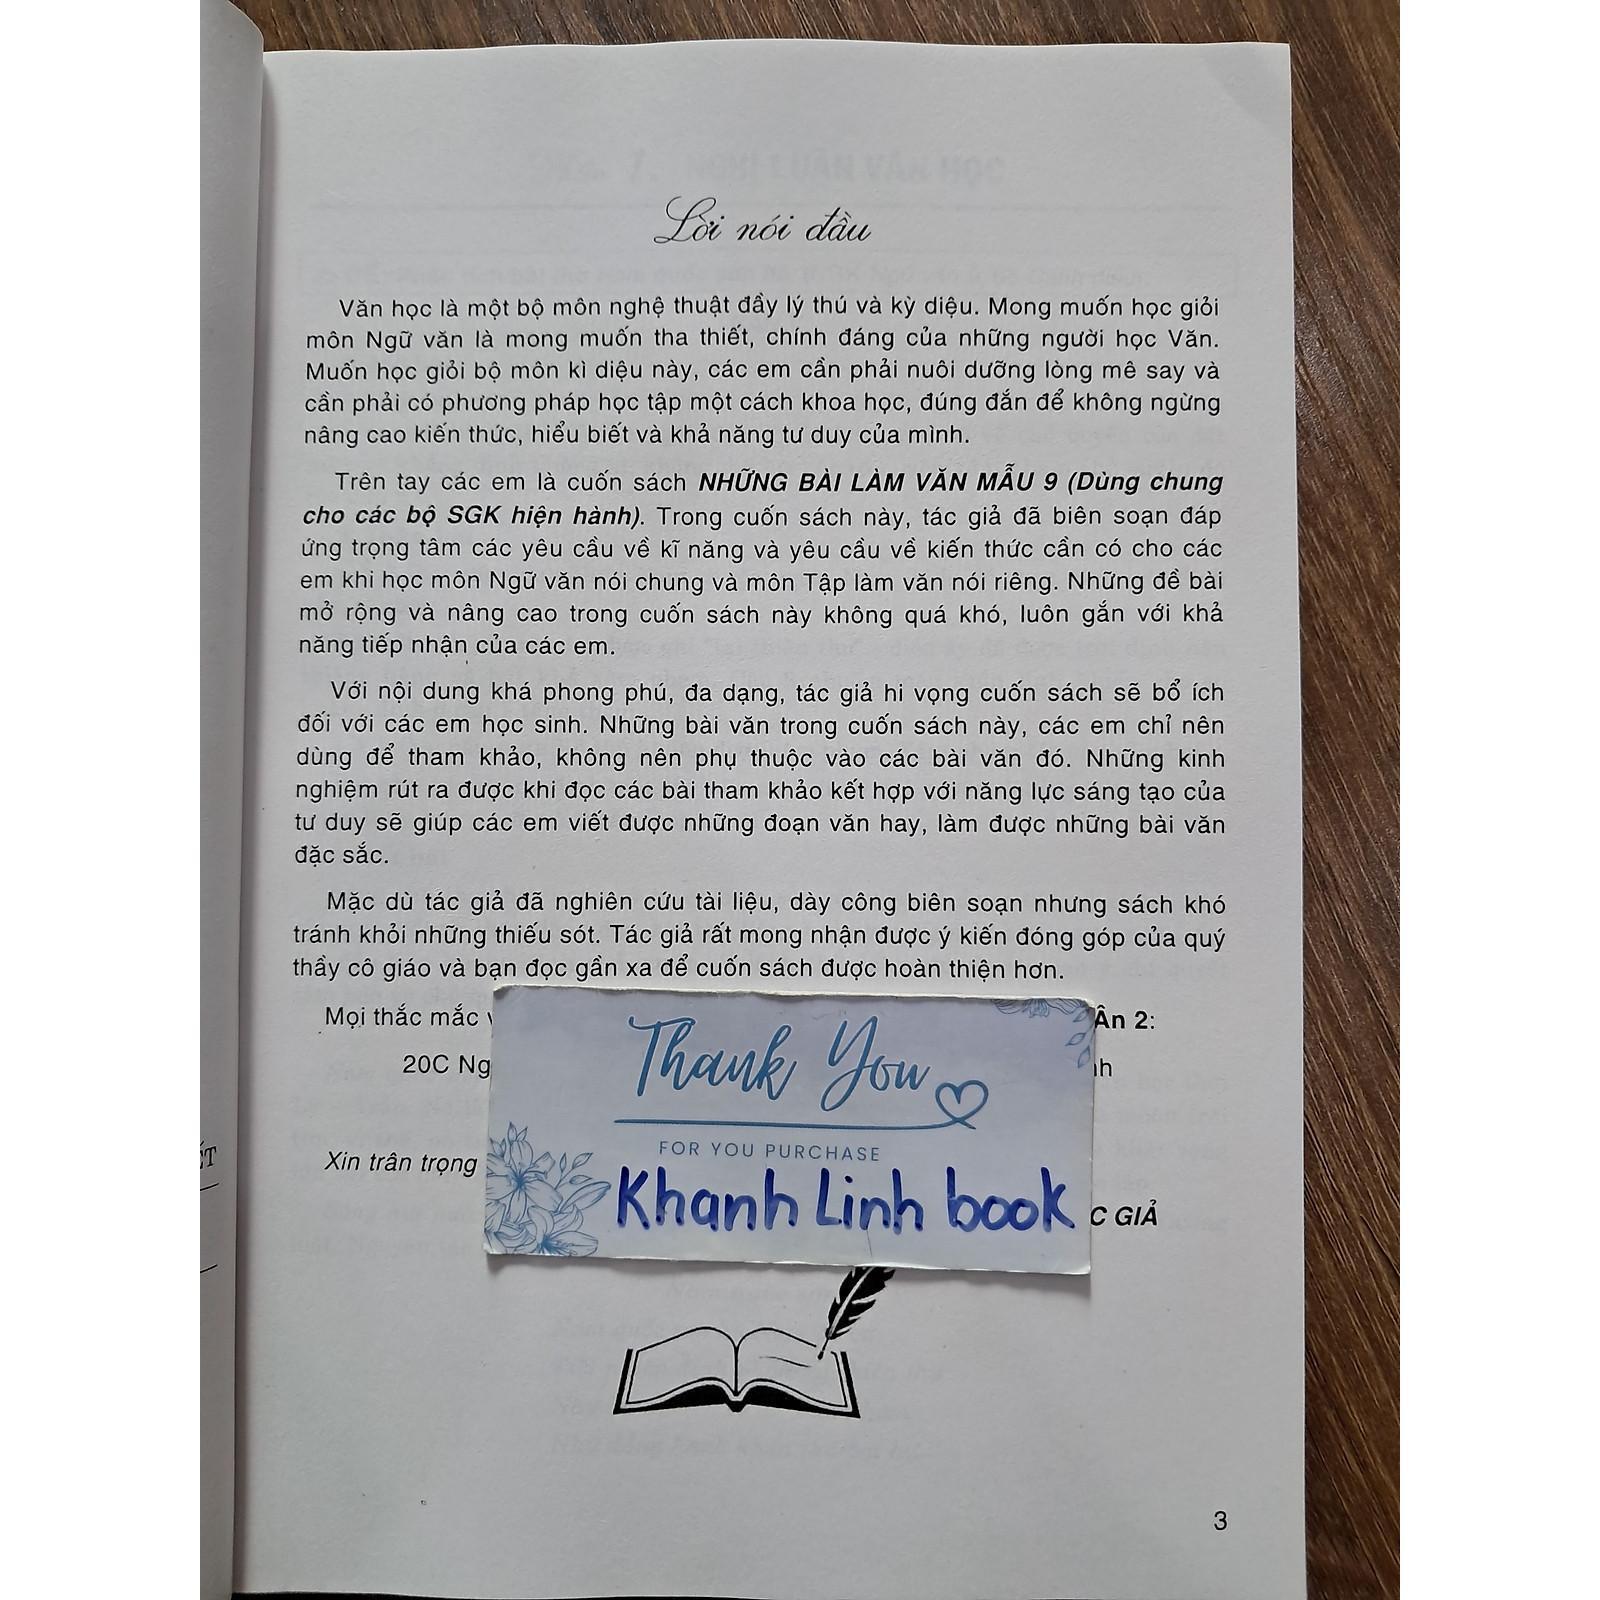 Lời nói đầu
Văn học là một bộ môn nghệ thuật đầy lý thú và kỳ diệu. Mong muốn học giỏi
môn Ngữ văn là mong muốn tha thiết, chính đáng của những người học Văn.
Muốn học giỏi bộ môn kì diệu này, các em cần phải nuôi dưỡng lòng mê say và
cần phải có phương pháp học tập một cách khoa học, đúng đắn để không ngừng
nâng cao kiến thức, hiểu biết và khả năng tư duy của mình.
Trên tay các em là cuốn sách NHỮNG BÀI LÀM VĂN MẪU 9 (Dùng chung
cho các bộ SGK hiện hành). Trong cuốn sách này, tác giả đã biên soạn đáp
ứng trọng tâm các yêu cầu về kĩ năng và yêu cầu về kiến thức cần có cho các
em khi học môn Ngữ văn nói chung và môn Tập làm văn nói riêng. Những đề bài
mở rộng và nâng cao trong cuốn sách này không quá khó, luôn gắn với khả
năng tiếp nhận của các em.
Với nội dung khá phong phú, đa dạng, tác giả hi vọng cuốn sách sẽ bổ ích
đối với các em học sinh. Những bài văn trong cuốn sách này, các em chỉ nên
dùng để tham khảo, không nên phụ thuộc vào các bài văn đó. Những kinh
nghiệm rút ra được khi đọc các bài tham khảo kết hợp với năng lực sáng tạo của
tư duy sẽ giúp các em viết được những đoạn văn hay, làm được những bài văn
đặc sắc.
Mặc dù tác giả đã nghiên cứu tài liệu, dày công biên soạn nhưng sách khó
tránh khỏi những thiếu sót. Tác giả rất mong nhận được ý kiến đóng góp của quý
thầy cô giáo và bạn đọc gần xa để cuốn sách được hoàn thiện hơn.
Mọi thắc mắc Ân 2:
20C
Xin trân trọng
GIẢ
Thank You
FOR YOU PURCHASE
Khanh Linh book
3